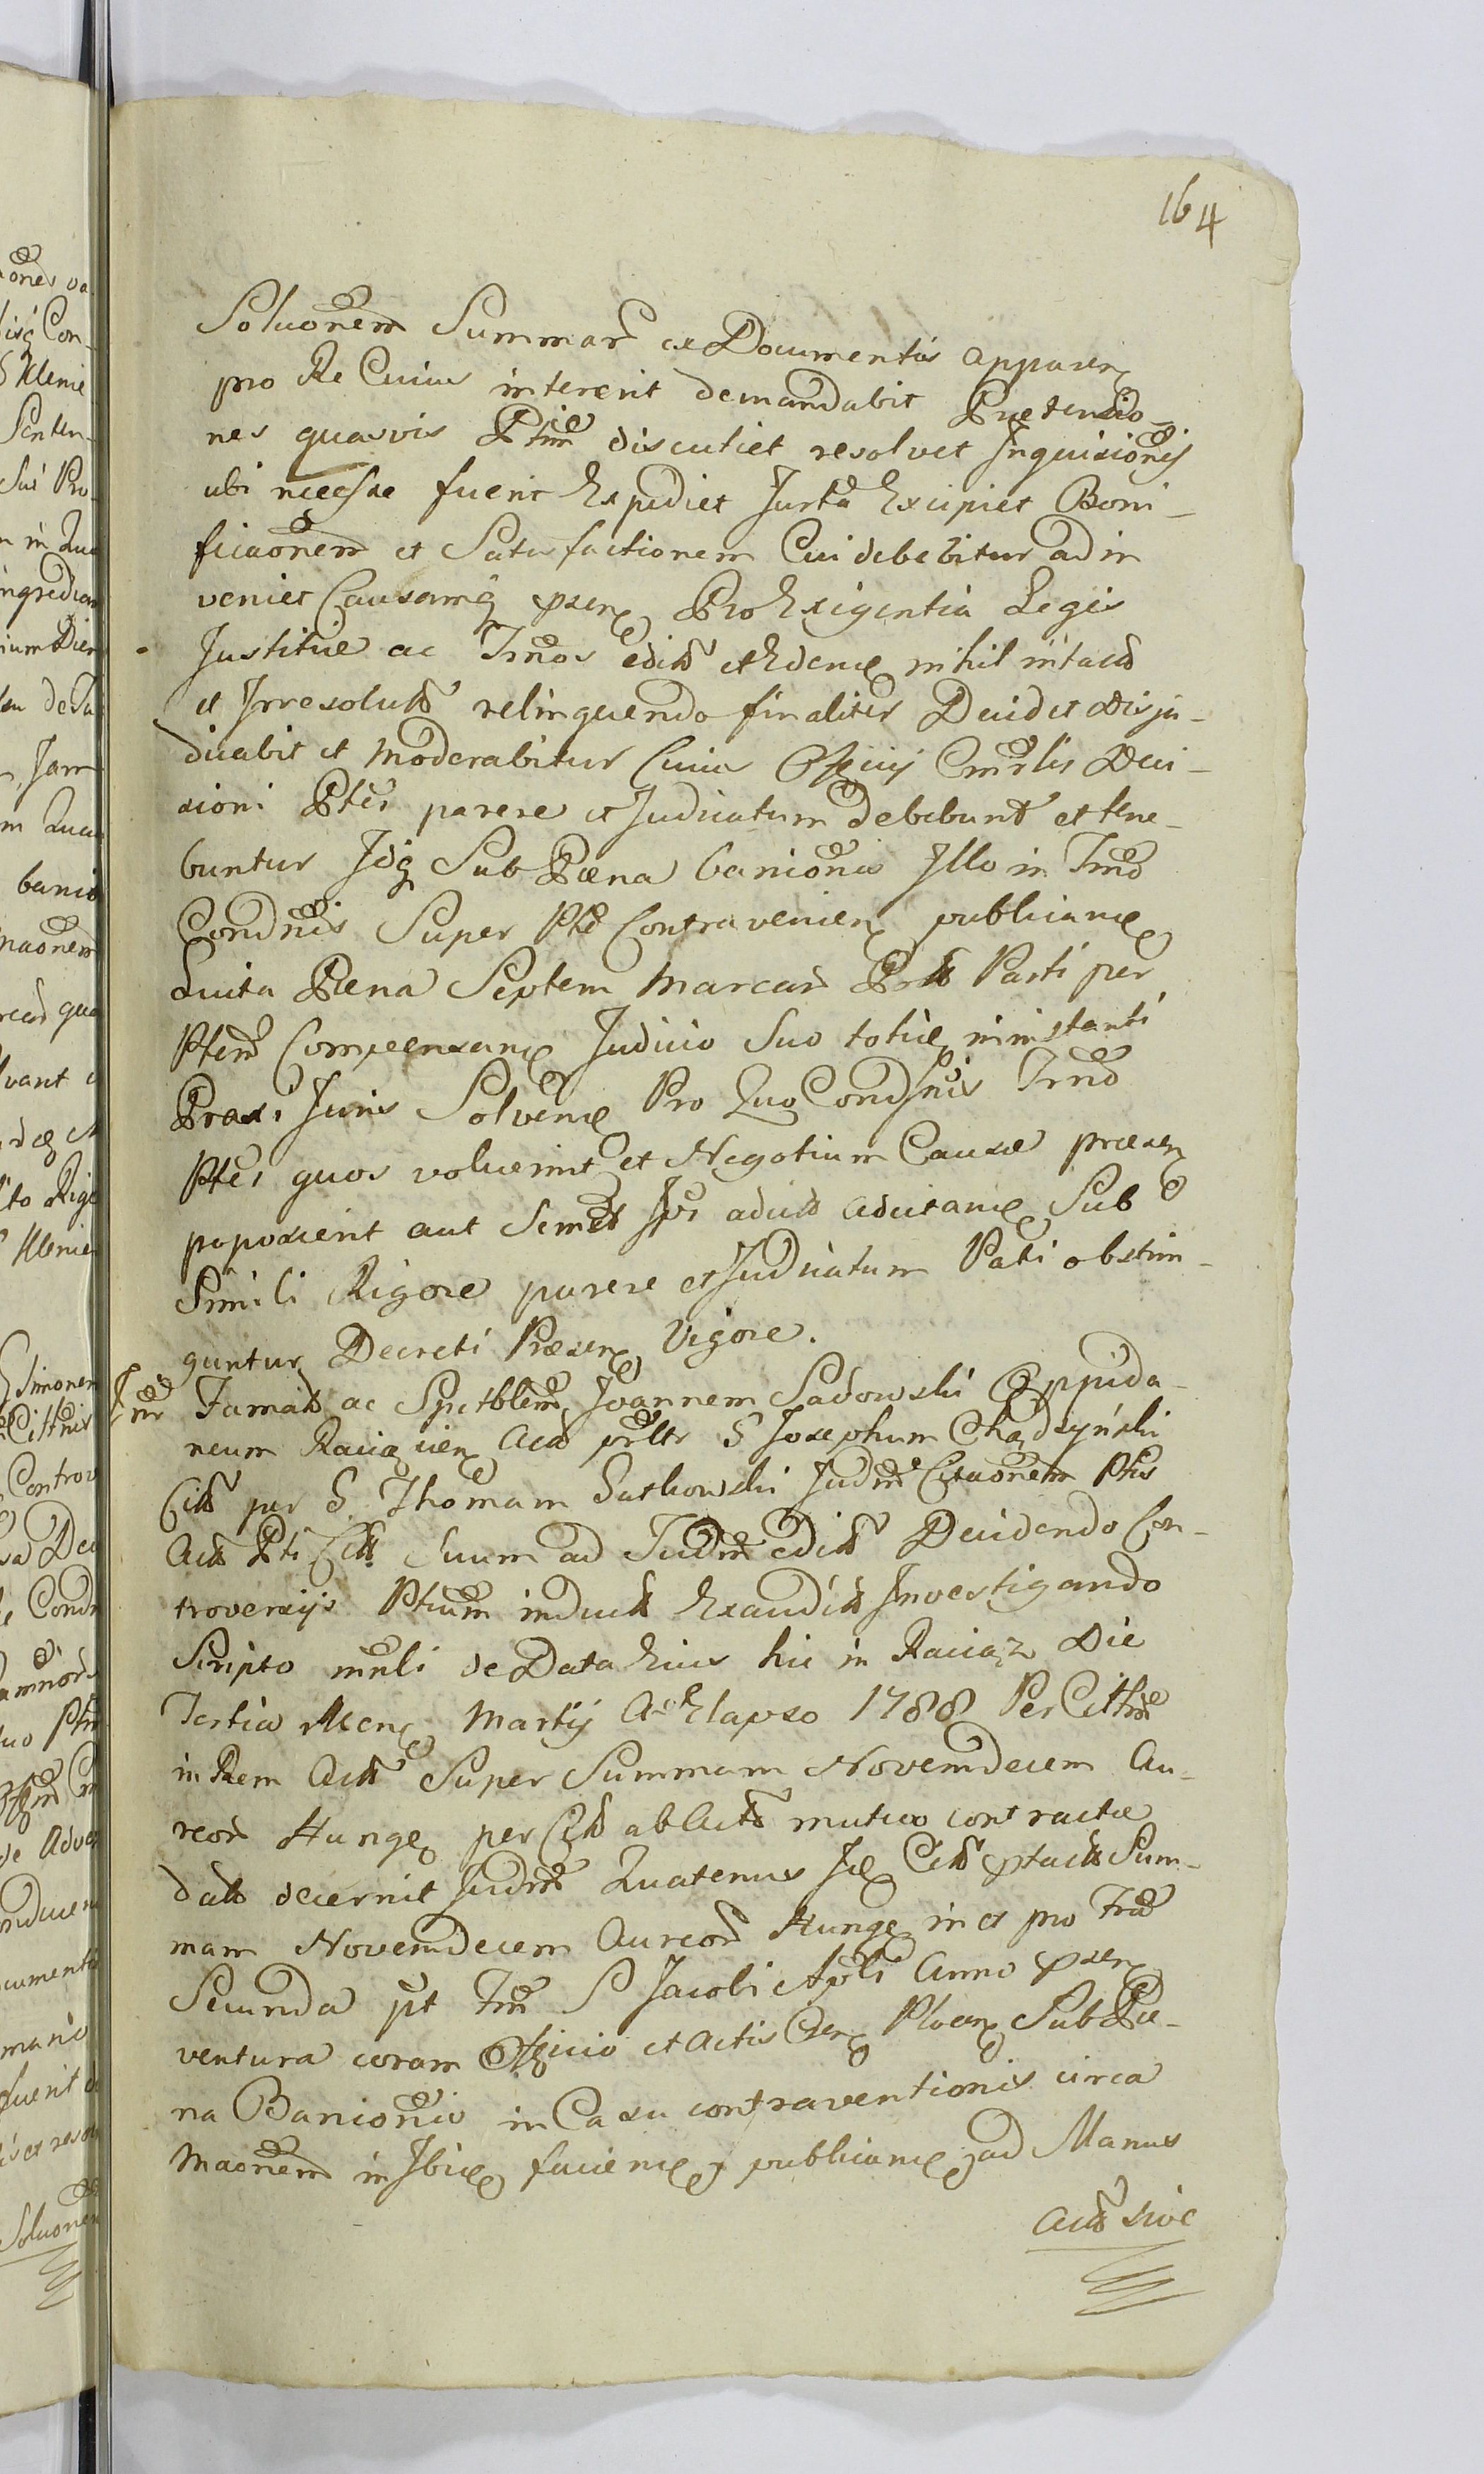 164
Soluõnem Summar ex Documentis apparen
pro Re Cuius intererit demandabit Prætensio-
nes quasvis Ptium discutiet resolvet Inquisiones
ubi necesse fuerit Expediet Jurta Excipiet Boni-
ficaõnem et Satisfactionem Cui debebitur adin
veniet Causamq pxen Pro Exigentia Legis
Justitiæ ac Trnos edit et Eden nihil intact
et Irresolut relinquendo finaliter Decidet Disju-
dicabit et Moderabitur Cuius Officij Cmrlis Deci-
sioni Ptes parere et Judicatum Debebunt et tene-
buntur Idq Sub Pæna baniõnis Illo in Trno
Condnis Super Pte Contravenien publican
Luita Pæna Septem Marcar Prt Parti per
Ptem Compensan Judicio Suo toties in instanti
Praxi Juris Solven Pro Quo Condsnis Trno
Ptes quos voluerint et Negotium Causæ præsen
poposcerit aut Semet Ipsi adcit adcitan Sub
Simili Rigore parere et Judicatum Pati obstrin-
guntur Decreti Præsen Vigore.
Inr Famat ac Spectblem Joannem Sadowski Oppida-
neum Raciązien Act prltr G Josephum Chądzyński
Citt per G Thomam Sutkowski Judm Citaõnem Ptis
Act Pti Citt Suum ad Judm edit Decidendo Con-
troversijs Ptium induct Exaudit Investigando
Scripto mnli de Data Eius hic in Raciąz Die
Tertia Men Martij Ao Elapso 1788 Per Cittm
in Rem Act Super Summam Novemdecem Au-
reor Hung per Citt ab Act mutuo contractæ
dat decernit Judm Quatenus Id Citt ptact Sum-
mam Novemdecem Aureor Hung in et pro Fria
Secunda pt Fm S Jacobi Apli Anno pxen
ventura coram Officio et Actis Cxen Plocen Sub Pæ-
na Baniõnis in Casu contraventionis circa
Maõnem in Ibid facien publican ad Manus
Act sive